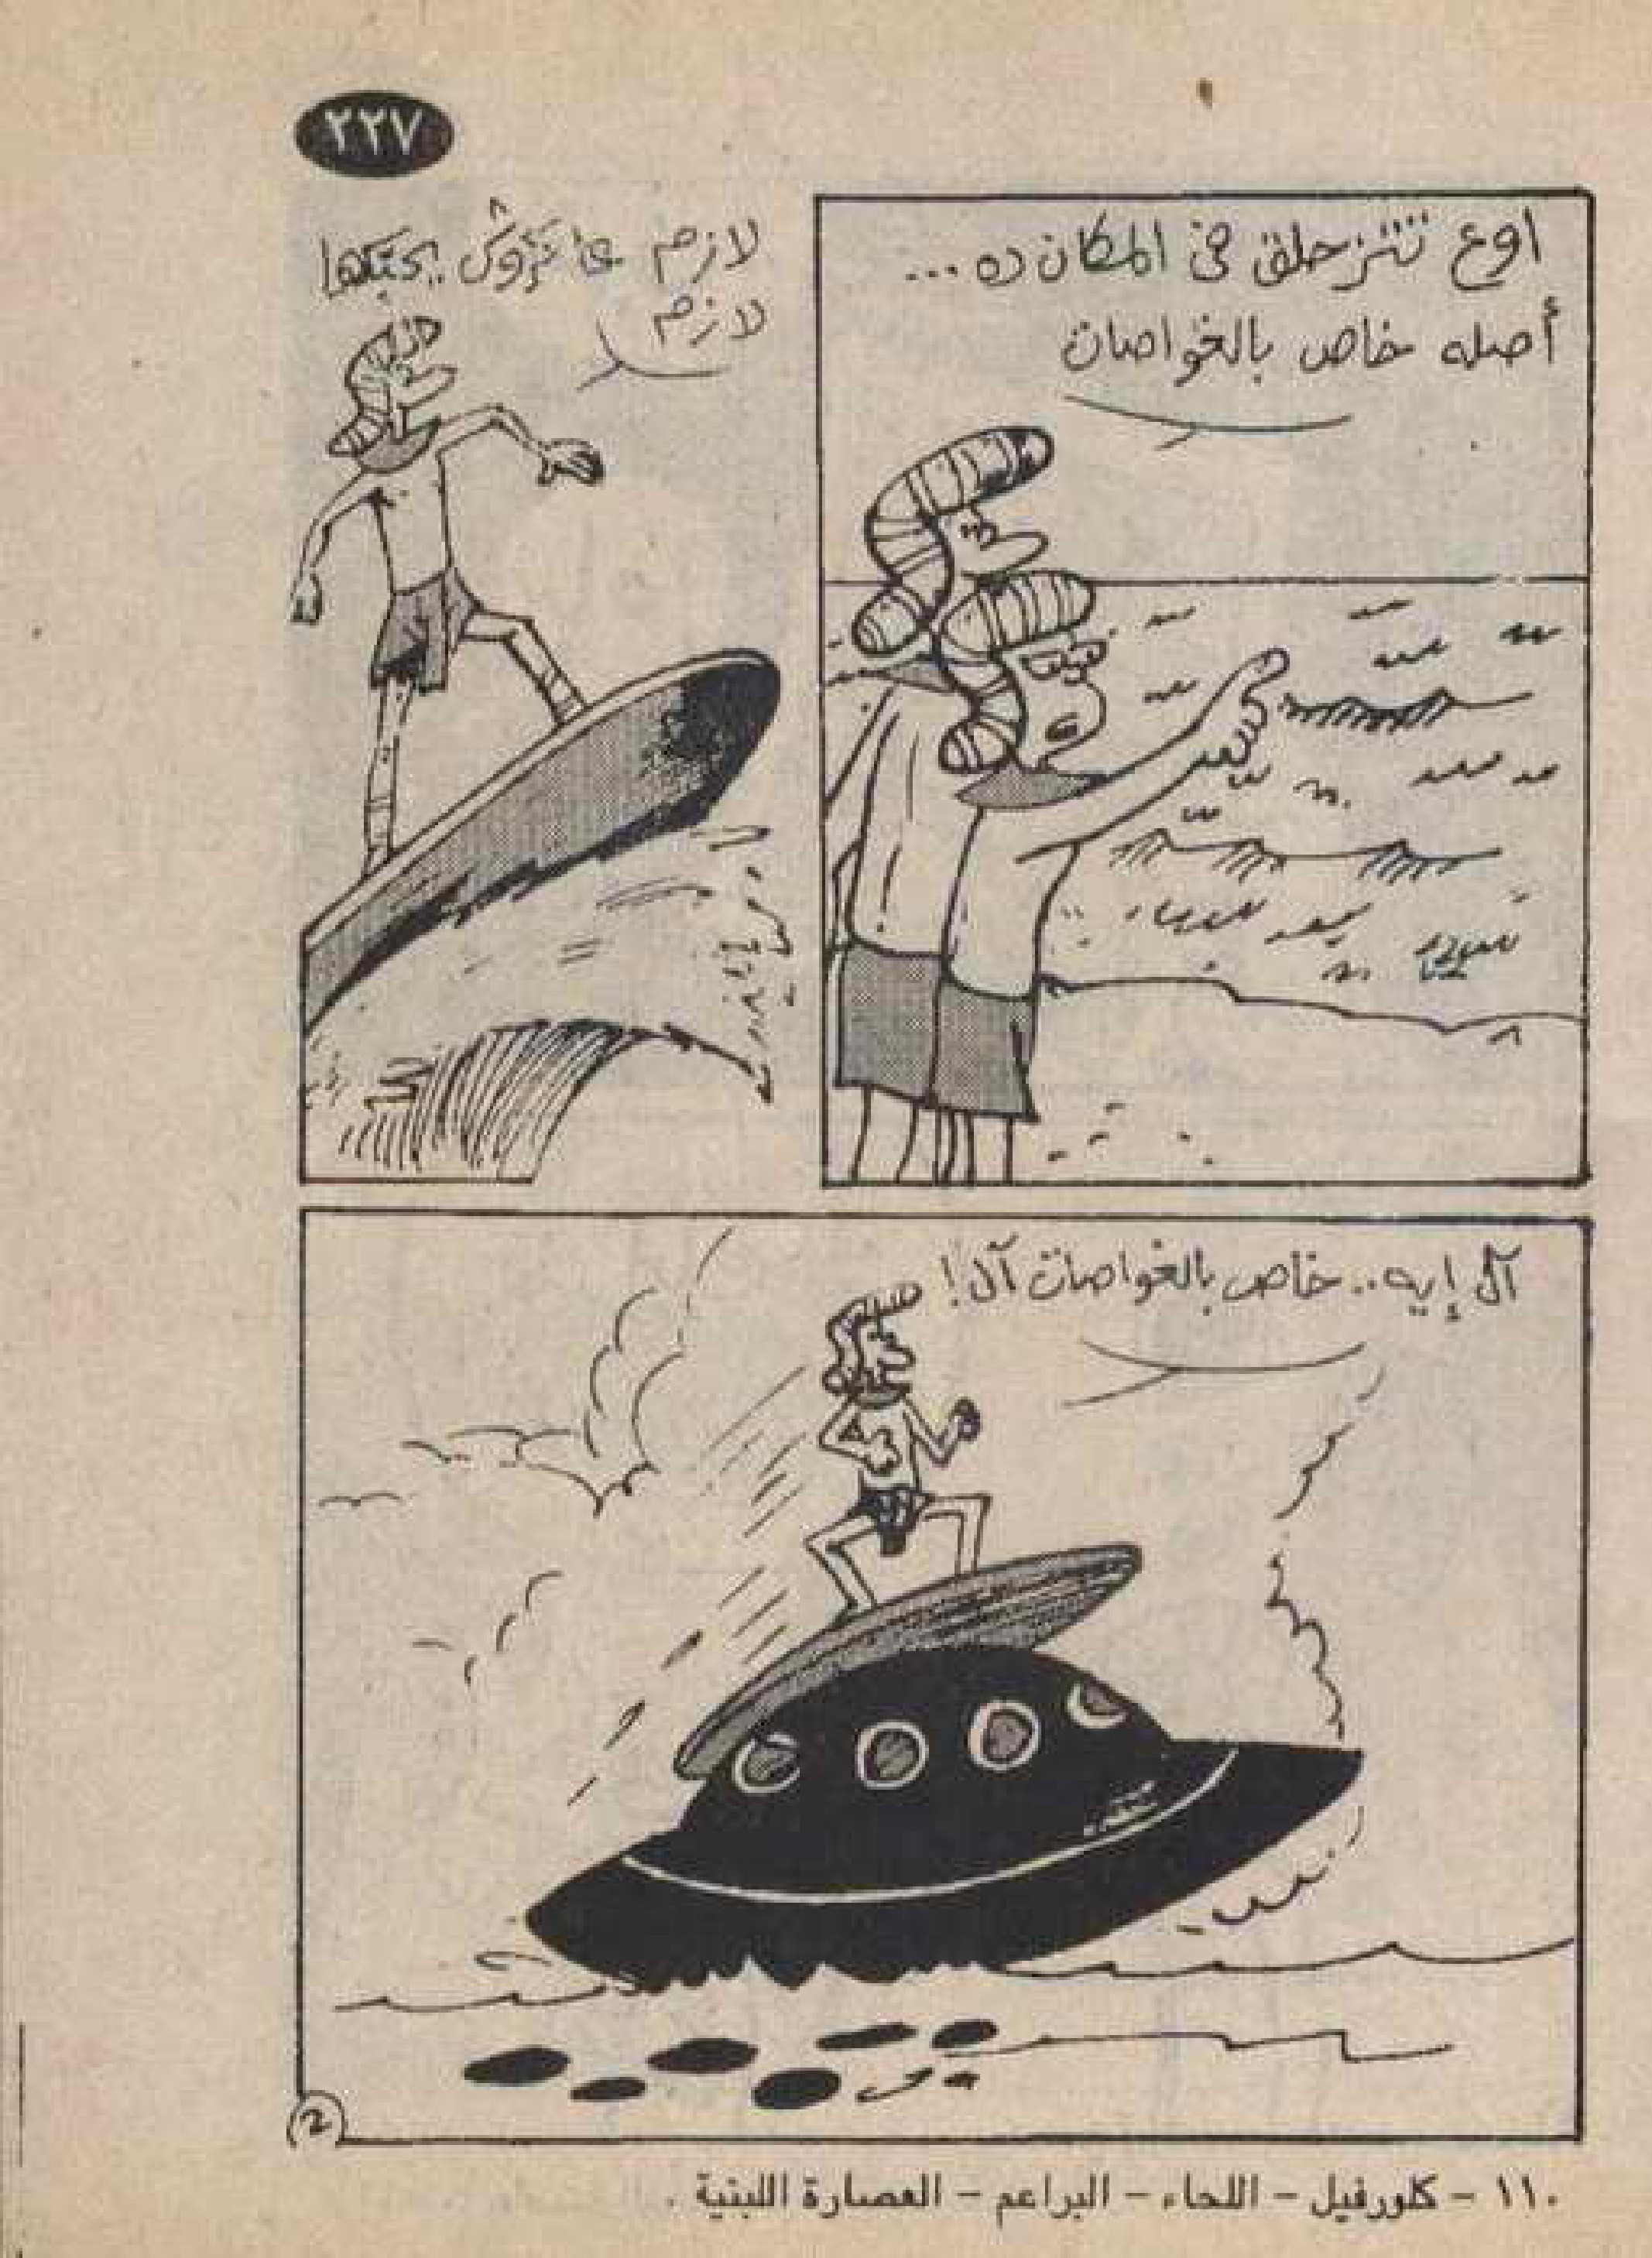 ٢٢٧
اوع تتزحلق في المكان ده ...
أصله خاص بالغواصات
لازم
لازم
آل إيه .. خاص بالغواصات آل !
2
١١٠ - كلورفيل - اللحاء - البراعم - العصارة اللبنية .